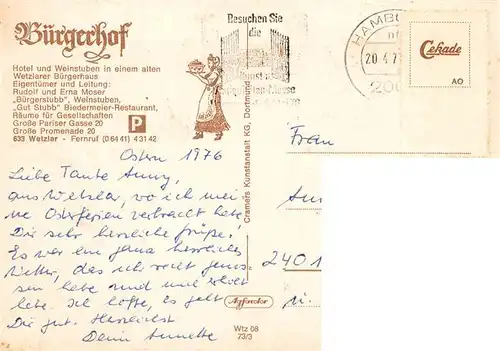 Bürgerhof
Hotel und Weinstuben in einem alten
Wetzlarer Bürgerhaus
Eigentümer und Leitung:
Rudolf und Erna Moser
„Bürgerstubb", Weinstuben,
„Gut Stubb" Biedermeier-Restaurant,
Räume für Gesellschaften
Große Pariser Gasse 20
Große Promenade 20
633 Wetzlar - Fernruf (06441) 43142
P
Besuchen Sie
die
HAMBU
20.4.7
200
Cekade
AO
Cramers Kunstanstalt KG, Dortmund
Ostern 1976
Liebe Tante Anny,
aus Wetzlar, wo ich mei-
ne Osterferien verbracht habe
Dir sehr herzliche Grüße!
Es war ein ganz herrliches
Wetter, das ich recht genos-
sen habe und mich erholt
habe. Ich hoffe, es geht
Dir gut. Herzlichst
Deine Annette
Frau
2401
Wtz 08
73/3